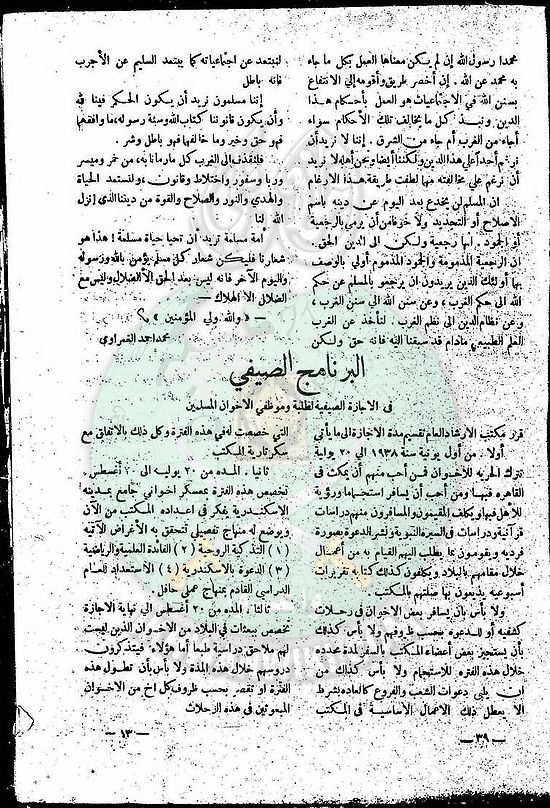 محمدا رسول الله إن لم يكن معناها العمل بكل ما جاء
به محمد عن الله . إن أخصر طريق وأقومه إلى الانتفاع
بسنن الله في الاجتماعيات هو العمل بأحكام هذا
الدين ونبذ كل ما يخالف تلك الأحكام سواء
أجاء من الغرب أم جاء من الشرق . إننا لا نريد أن
نرغم أحدا على هذا الدين ولكننا أيضا ونحن أهله لا نريد
أن نرغم على مخالفته مهما لطفت طريقة هذا الارغام
ان المسلم لن يخدع بعد اليوم عن دينه باسم
الاصلاح أو التجديد ولا خوفا من أن يرمى بالرجعية
أو الجمود . انها رجعية ولكن الى الدين الحق .
ان الرجعية المذمومة والجمود المذموم أولى بالوصف
بها أولئك الذين يريدون ان يرجعوا بالمسلم عن حكم
الله الى حكم الغرب ، وعن سنن الله الى سنن الغرب ،
وعن نظام الدين الى نظم الغرب . لنأخذ عن الغرب
العلم الطبيعي مادام قد سبقنا اليه فانه حق ولكن
لنبتعد عن اجتماعياته كما يبتعد السليم عن الأجرب
فانه باطل
إننا مسلمون نريد أن يكون الحكم فينا لله
وأن يكون قانوننا كتاب الله وسنة رسوله ، ما وافقهما
فهو حق وخير وما خالفهما فهو باطل وشر .
فلنقذف الى الغرب كل مارمانا به ، من خمر وميسر
وربا وسفور واختلاط وقانون ، ولنستمد الحياة
والهدى والنور والصلاح والقوة من ديننا الذى إنزل
الله لنا
أمة مسلمة تريد أن تحيا حياة مسلمة ! هذا هو
شعارنا فليكن شعار كل مسلم يؤمن بالله ورسوله
واليوم الآخر فانه ليس بعد الحق إلا الضلال وليس مع
الضلال الا الهلاك —
— « والله ولي المؤمنين »
محمد احمد الغمراوى
البرنامج الصيفي
فى الاجازة الصيفية لطلبة وموظفي الاخوان المسلمين
قرر مكتب الارشاد العام تقسيم مدة الاجازة الى ما يأتى
أولا — من أول يونية سنة ١٩٣٨ الى ٢٠ يولية
تترك الحريه للأخوان فمن أحب منهم أن يمكث فى
القاهره فبها ومن أحب أن يسافر استجماما ورؤية
للأهل فبها ويكلف المقيمون والمسافرون منهم دراسات
قرآنية ودراسات فى السيره النبوية ولنشر الدعوة بصورة
فرديه ويقومون بما يطلب اليهم القيام به من أعمال
خلال مقامهم بالبلاد ويكلفون كذلك كتابة تقريرات
أسبوعيه يذيعون بها صلتهم بالمكتب .
ولا بأس بأن يسافر بعض الاخوان فى رحلات
كشفيه أو للدعوة بحسب ظروفهم ولا بأس كذلك
بأن يستجيز بعض أعضاء المكتب بالسفر لمدة محدده
خلال هذه الفتره للاستجمام ولا بأس كذلك من
ان يلبى دعوات الشعب والفروع كالعاده بشرط
الا يعطل ذلك الاعمال الاساسية فى المكتب
التي خصصت له فى هذه الفترة وكل ذلك بالاتفاق مع
سكرتارية المكتب
ثانيا . المده من ٢٠ يوليه الى ٢٠ أغسطس .
تخصص هذه الفترة بمعسكر اخوانى جامع بمدينه
الاسكندرية يفكر فى اعداده المكتب من الآن
ويوضع له منهاج تفصيلي تتحقق به الأغراض الآتيه
(١) التذكية الروحية (٢) الفائدة العلمية والرياضية
(٣) الدعوة بالاسكندرية (٤) الأستعداد للعام
الدراسى القادم بمنهاج عملى حافل
ثالثا . المده من ٢٠ أغسطس الى نهاية الاجازة
تخصص ببعثات فى البلاد من الاخوان الذين ليست
لهم ملاحق دراسية طبعا أما هؤلاء فيتذكرون
دروسهم خلال هذه المدة ولا بأس بأن تطول هذه
الفترة او تقصر بحسب ظروف كل اخ من الأخوان
المبعوثين فى هذه الرحلات
— ٣٩ —
— ١٣ —